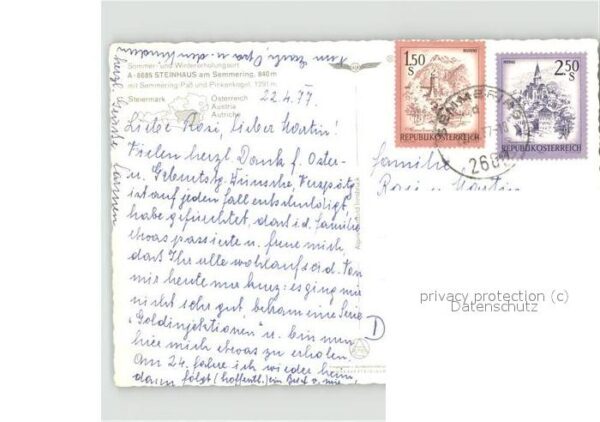 Sommer- und Wintererholungsort
A-8685 STEINHAUS am Semmering, 840 m
mit Semmering-Paß und Pinkenkogel, 1291 m
Steiermark
Österreich
Austria
Autriche
22.4.77
Liebe Rosi, lieber Martin!
Vielen herzl. Dank f. Oster-
u. Geburtstg. Wünsche, Verspätg.
ist auf jeden Fall entschuldigt,
habe gefürchtet, dass i.d. Familie
etwas passierte u. freue mich,
dass Ihr alle wohlauf seid. Von
mir heute nur kurz: es ging mir
nicht sehr gut, bekam eine Serie
"Goldinjektionen" u. bin nun
hier mich etwas zu erholen.
Am 24. fahre ich wieder heim,
dann folgt (hoffentl.) ein Brief v. mir
Familie
Rosi u. Martin
1.50
S
REPUBLIK ÖSTERREICH
2.50
S
REPUBLIK ÖSTERREICH
SEMMERING
2680
privacy protection (c)
Datenschutz